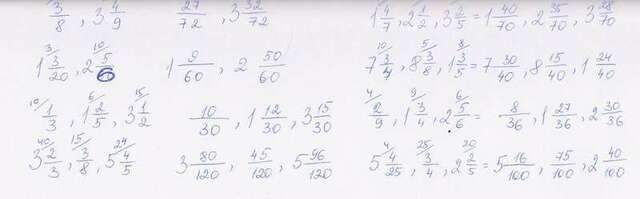 3/8, 3 4/9   27/72, 3 32/72   1 4/7, 2 1/2, 3 2/5 = 1 40/70, 2 35/70, 3 28/70
1 ³⁄ 3/20, 2 ¹⁰⁄ 5/6   1 9/60, 2 50/60   7 ¹⁰⁄ 3/4, 8 ⁵⁄ 3/8, 1 ⁸⁄ 3/5 = 7 30/40, 8 15/40, 1 24/40
¹⁰⁄ 1/3, 1 ⁶⁄ 2/5, 3 ¹⁵⁄ 1/2   10/30, 1 12/30, 3 15/30   ⁴⁄ 2/9, 1 ⁹⁄ 3/4, 2 ⁶⁄ 5/6 = 8/36, 1 27/36, 2 30/36
3 ⁴⁰⁄ 2/3, ¹⁵⁄ 3/8, 5 ²⁴⁄ 4/5   3 80/120, 45/120, 5 96/120   5 ⁴⁄ 4/25, ²⁵⁄ 3/4, 2 ²⁰⁄ 2/5 = 5 16/100, 75/100, 2 40/100